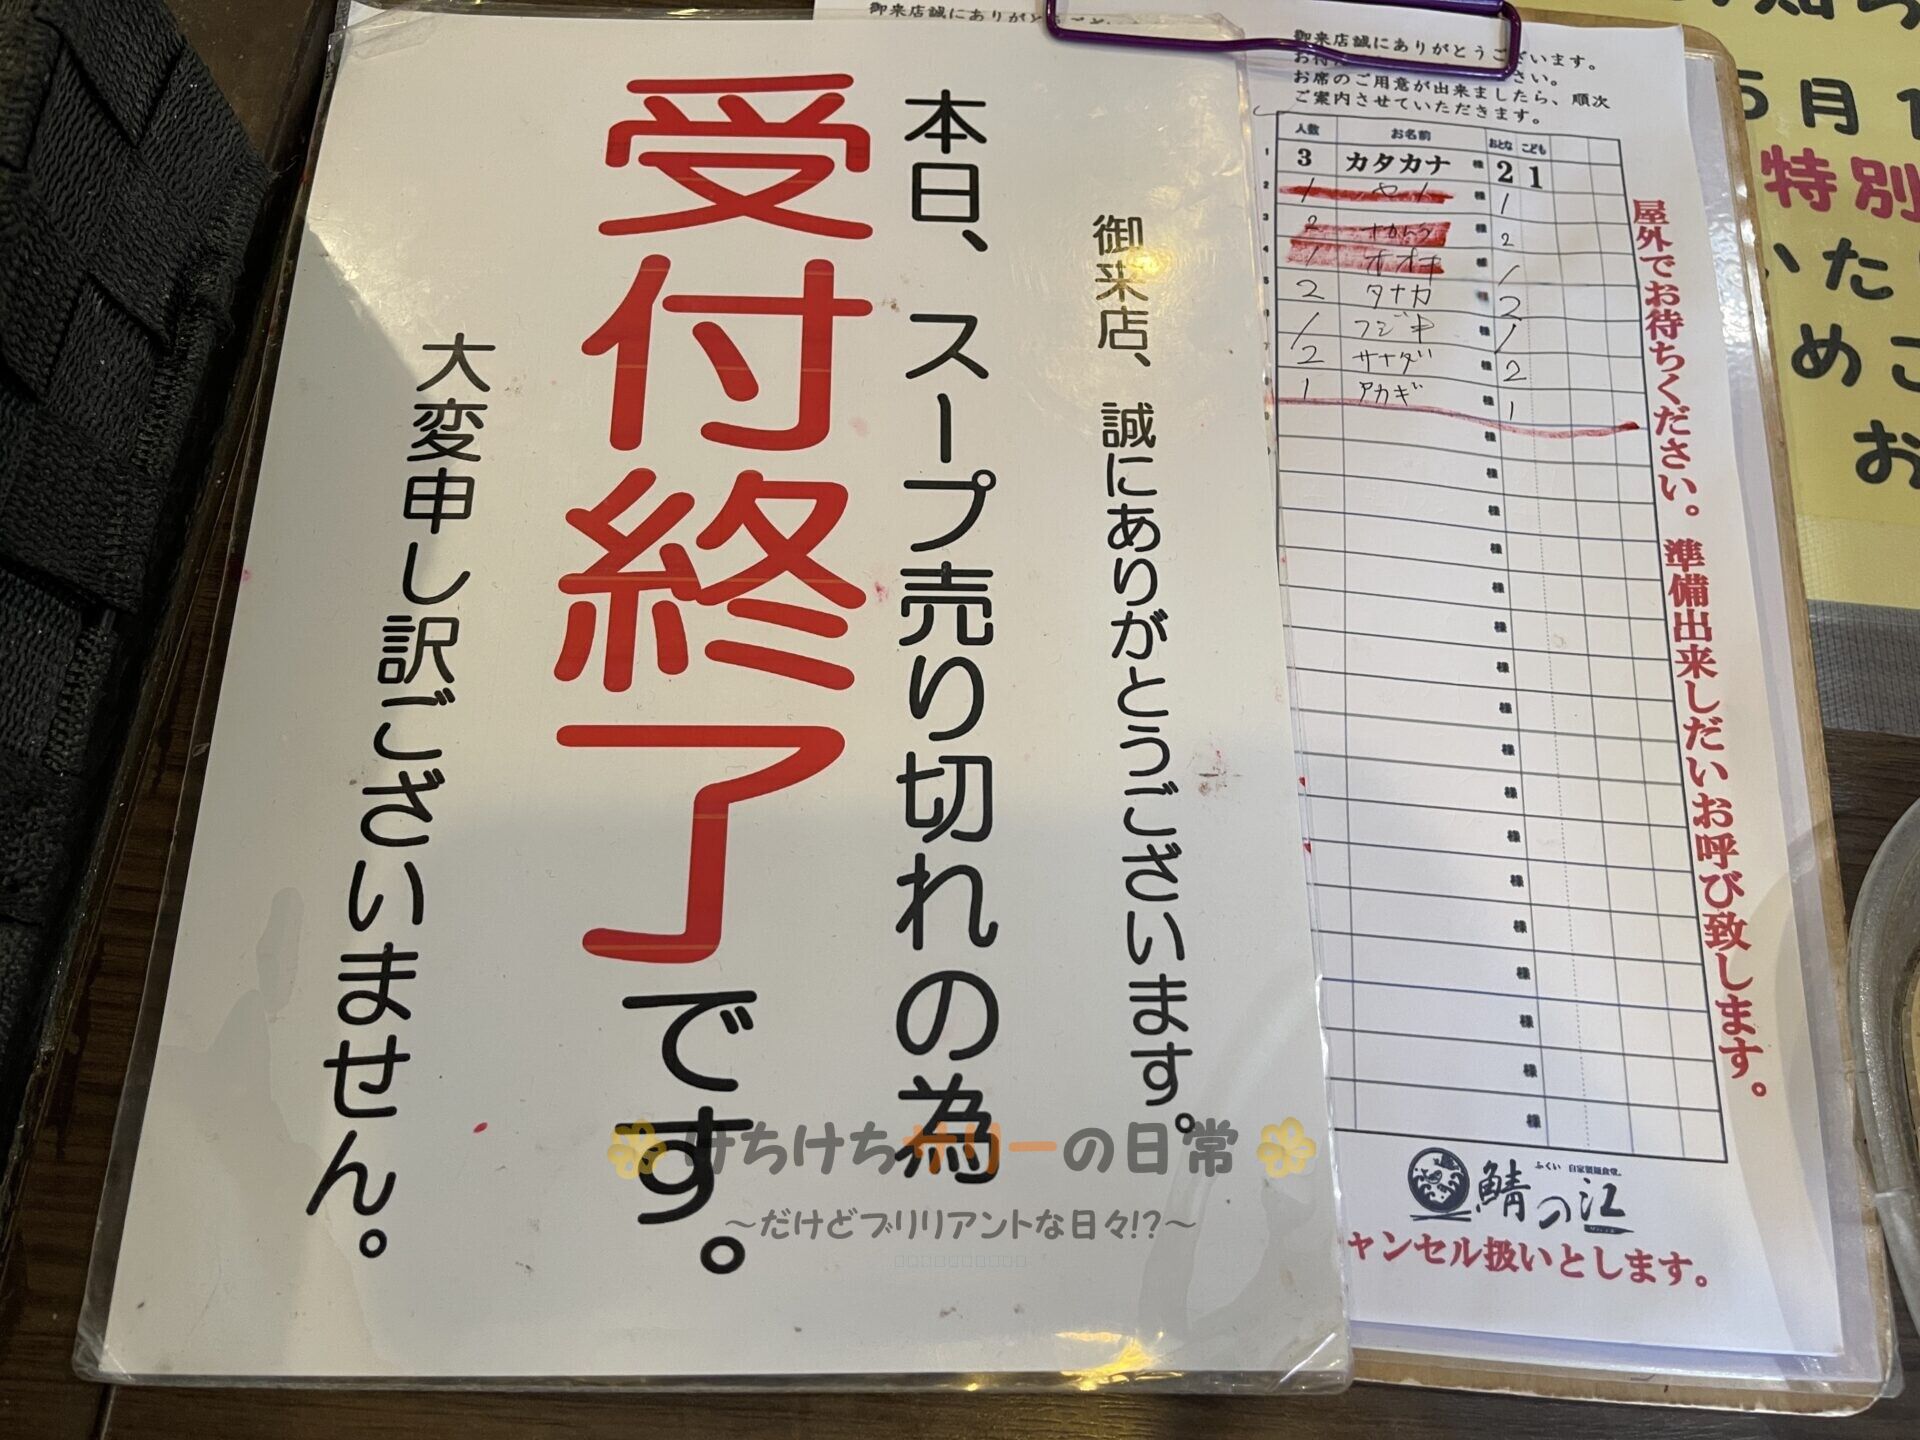 御来店、誠にありがとうございます。
本日、スープ売り切れの為
受付終了です。
大変申し訳ございません。
御来店誠にありがとうござ
御来店誠にありがとうございます。
さい。
お席のご用意が出来ましたら、順次
ご案内させていただきます。
人数 お名前 おとな こども
1 3 カタカナ 様 2 1
2 1 様 1
3 2 ナカムラ 様 2
4 1 様 1
5 2 タナカ 様 2
6 1 フジキ 様 1
7 2 サナダ 様 2
8 1 アカギ 様 1
様
様
様
様
様
様
様
様
様
様
様
様
様
様
様
様
様
屋外でお待ちください。準備出来しだいお呼び致します。
ふくい 自家製麺食堂。
鯖の江
ャンセル扱いとします。
5月1
特別
いた
めご
お
けちけちサリーの日常
～だけどブリリアントな日々!?～